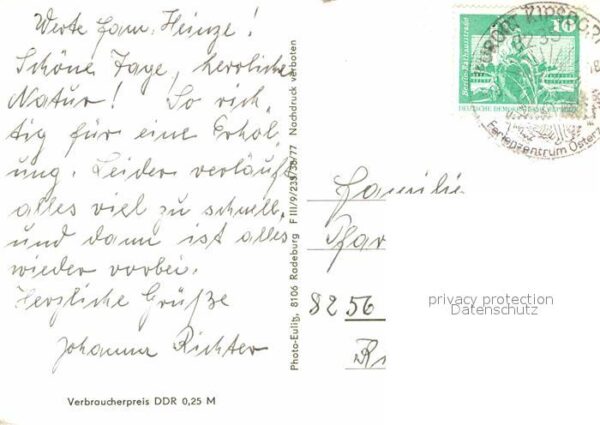 Werte Fam. Heinze!
Schöne Tage, herrliche
Natur! So rich-
tig für eine Erhol-
ung. Leider verläuft
alles viel zu schnell,
und dann ist alles
wieder vorbei.
Herzliche Grüße
Johanna Richter
Verbraucherpreis DDR 0,25 M
Photo-Eulitz, 8106 Radeburg F III/9/235/38/77 Nachdruck verboten
10
Berlin, Rathausstraße
KURORT KIPSDORF
Ferienzentrum Osterz
Familie
8256
privacy protection
Datenschutz